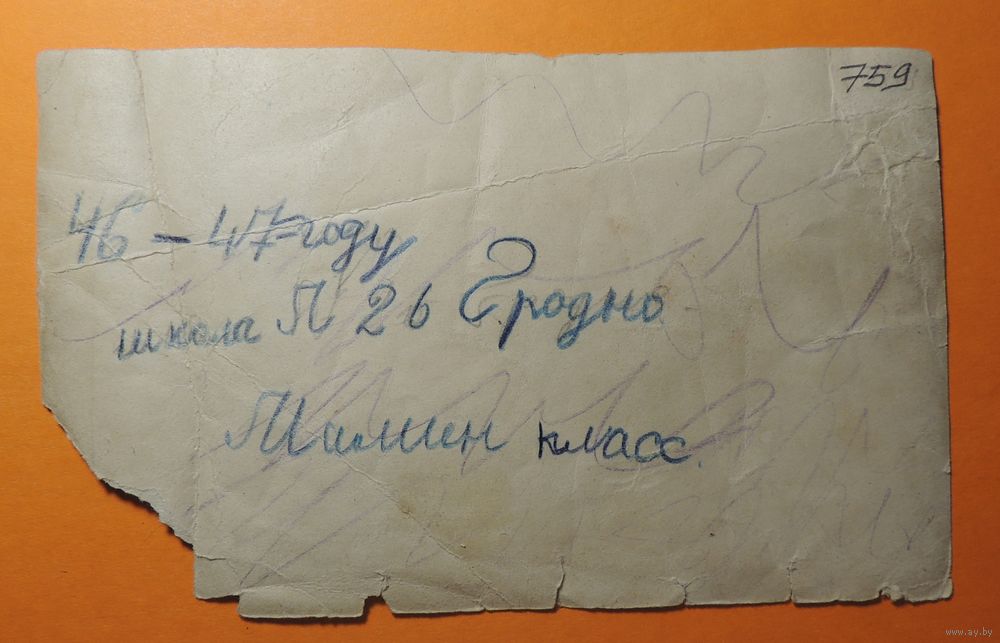 759
46 – 47 году
школа N 2 в Гродно
Мамин класс.
www.ay.by